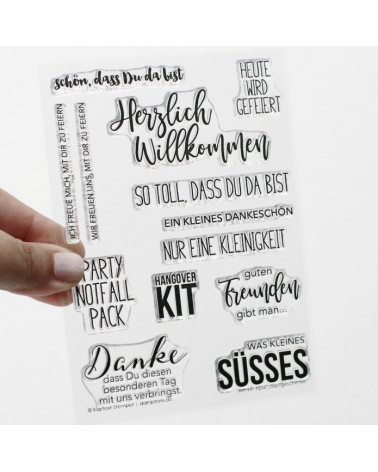 schön, dass Du da bist
HEUTE
WIRD
GEFEIERT
ICH FREUE MICH, MIT DIR ZU FEIERN
WIR FREUEN UNS, MIT DIR ZU FEIERN
Herzlich
Willkommen
SO TOLL, DASS DU DA BIST
EIN KLEINES DANKESCHÖN
NUR EINE KLEINIGKEIT
PARTY
NOTFALL
PACK
HANGOVER
KIT
guten
Freunden
gibt man...
Danke
dass Du diesen
besonderen Tag
mit uns verbringst.
WAS KLEINES
SÜSSES